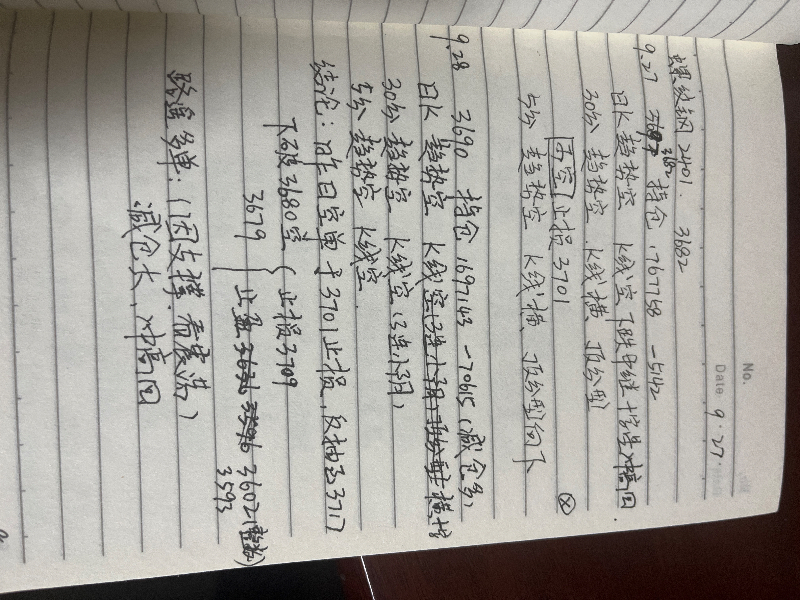 No.
Date 9·27·
螺纹钢 2401. 3682
9.27 3682 持仓 1767758 -5142
日K 趋势空 K线空 下跌中继 十字星 冲高回
30分 趋势空. K线横、顶分型
5分 趋势空 K线横、顶分型向下
再空 止损 3701
9.28 3690 持仓 1697143 -70615 (减仓多)
日K 趋势空 K线空
30分 趋势空 K线空 (3连小阴)
5分 趋势空 K线空
结论: 昨日空单于3701止损, 反抽至3717
下破3680空 { 止损3709
3679 止盈 3602 (整数)
3593
政金多单: (因支撑 看震荡)
减仓大、冲高回